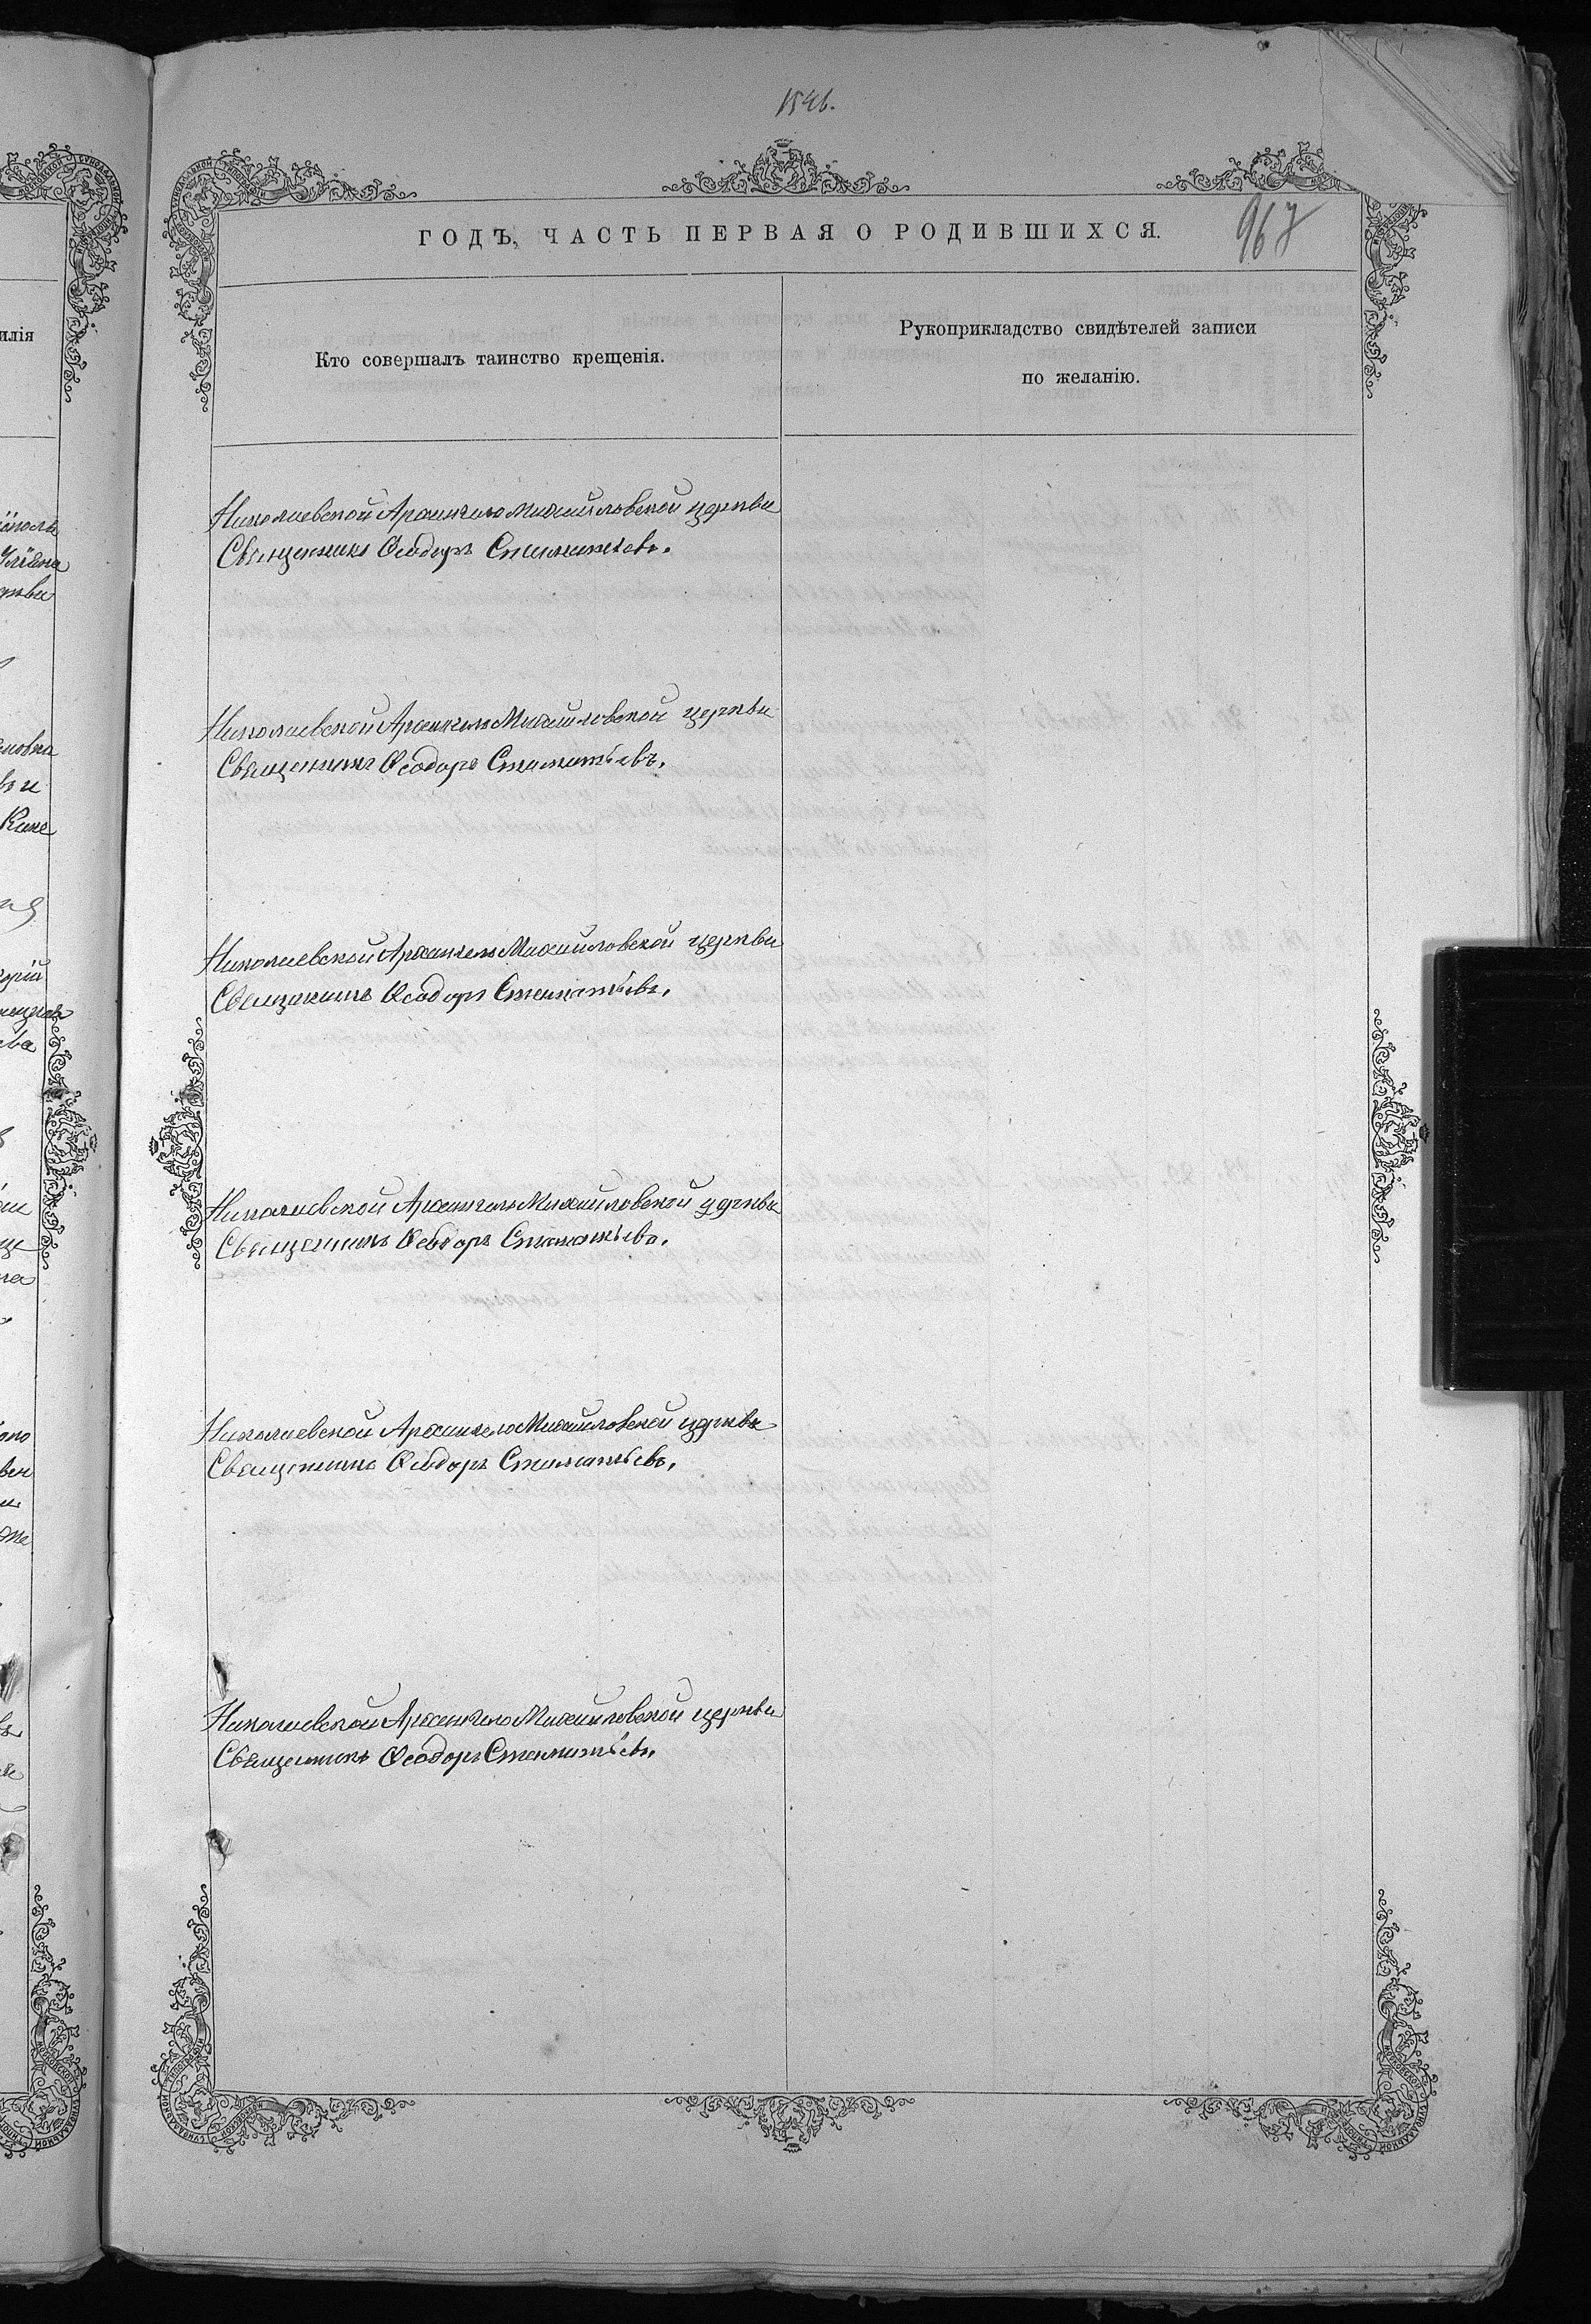 1546.
ГОДЪ, ЧАСТЬ ПЕРВАЯ О РОДИВШИХСЯ.
967
Кто совершалъ таинство крещенія.
Рукоприкладство свидѣтелей записи
по желанію.
Николаевской Архангело Михайловской церкви
Священникъ Ѳеодоръ Стаматьевъ.
Николаевской Архангело Михайловской церкви
Священникъ Ѳеодоръ Стаматьевъ.
Николаевской Архангело Михайловской церкви
Священникъ Ѳеодоръ Стаматьевъ.
Николаевской Архангело Михайловской церкви
Священникъ Ѳеодоръ Стаматьевъ.
Николаевской Архангело Михайловской церкви
Священникъ Ѳеодоръ Стаматьевъ.
Николаевской Архангело Михайловской церкви
Священникъ Ѳеодоръ Стаматьевъ.